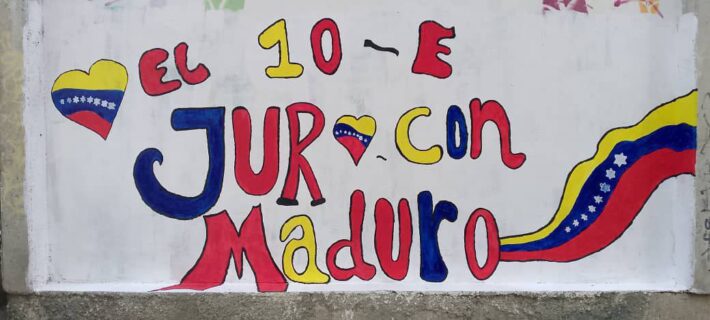 EL 10~E
JUR❤~con
Maduro